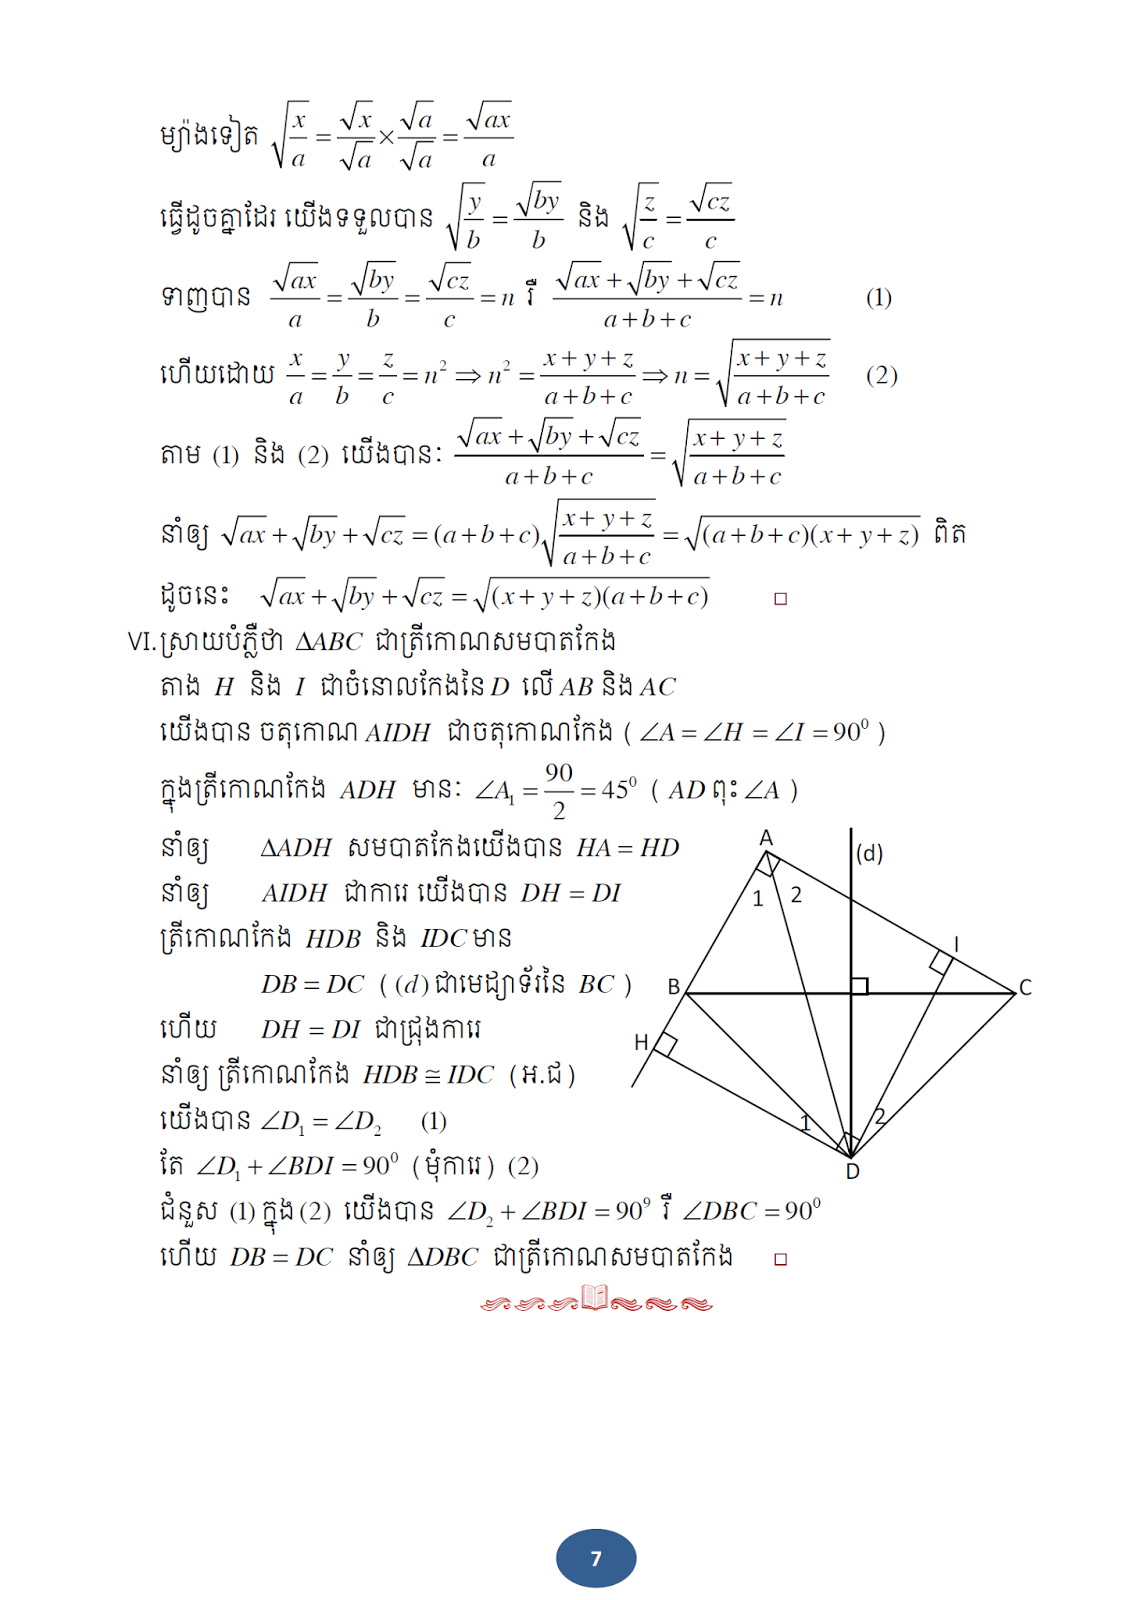 ម្យ៉ាងទៀត $\sqrt{\frac{x}{a}}=\frac{\sqrt{x}}{\sqrt{a}}\times\frac{\sqrt{a}}{\sqrt{a}}=\frac{\sqrt{ax}}{a}$
ធ្វើដូចគ្នាដែរ យើងទទួលបាន $\sqrt{\frac{y}{b}}=\frac{\sqrt{by}}{b}$ និង $\sqrt{\frac{z}{c}}=\frac{\sqrt{cz}}{c}$
ទាញបាន $\frac{\sqrt{ax}}{a}=\frac{\sqrt{by}}{b}=\frac{\sqrt{cz}}{c}=n$ រឺ $\frac{\sqrt{ax}+\sqrt{by}+\sqrt{cz}}{a+b+c}=n$ (1)
ហើយដោយ $\frac{x}{a}=\frac{y}{b}=\frac{z}{c}=n^2\Rightarrow n^2=\frac{x+y+z}{a+b+c}\Rightarrow n=\sqrt{\frac{x+y+z}{a+b+c}}$ (2)
តាម (1) និង (2) យើងបាន: $\frac{\sqrt{ax}+\sqrt{by}+\sqrt{cz}}{a+b+c}=\sqrt{\frac{x+y+z}{a+b+c}}$
នាំឲ្យ $\sqrt{ax}+\sqrt{by}+\sqrt{cz}=(a+b+c)\sqrt{\frac{x+y+z}{a+b+c}}=\sqrt{(a+b+c)(x+y+z)}$ ពិត
ដូចនេះ $\sqrt{ax}+\sqrt{by}+\sqrt{cz}=\sqrt{(x+y+z)(a+b+c)}$ □
VI. ស្រាយបំភ្លឺថា ΔABC ជាត្រីកោណសមបាតកែង
តាង H និង I ជាចំនោលកែងនៃ D លើ AB និង AC
យើងបាន ចតុកោណ AIDH ជាចតុកោណកែង ( ∠A = ∠H = ∠I = 90⁰ )
ក្នុងត្រីកោណកែង ADH មាន: $\angle A_1=\frac{90}{2}=45^0$ ( AD ពុះ ∠A )
នាំឲ្យ ΔADH សមបាតកែងយើងបាន HA = HD
នាំឲ្យ AIDH ជាការេ យើងបាន DH = DI
ត្រីកោណកែង HDB និង IDC មាន
DB = DC ( (d) ជាមេដ្យាទ័រនៃ BC )
ហើយ DH = DI ជាជ្រុងការេ
នាំឲ្យ ត្រីកោណកែង HDB ≅ IDC (អ.ជ)
យើងបាន ∠D₁ = ∠D₂ (1)
តែ ∠D₁ + ∠BDI = 90⁰ (មុំការេ) (2)
ជំនួស (1) ក្នុង (2) យើងបាន ∠D₂ + ∠BDI = 90⁹ រឺ ∠DBC = 90⁰
ហើយ DB = DC នាំឲ្យ ΔDBC ជាត្រីកោណសមបាតកែង □
A
(d)
1 2
I
B
C
H
1
2
D
7